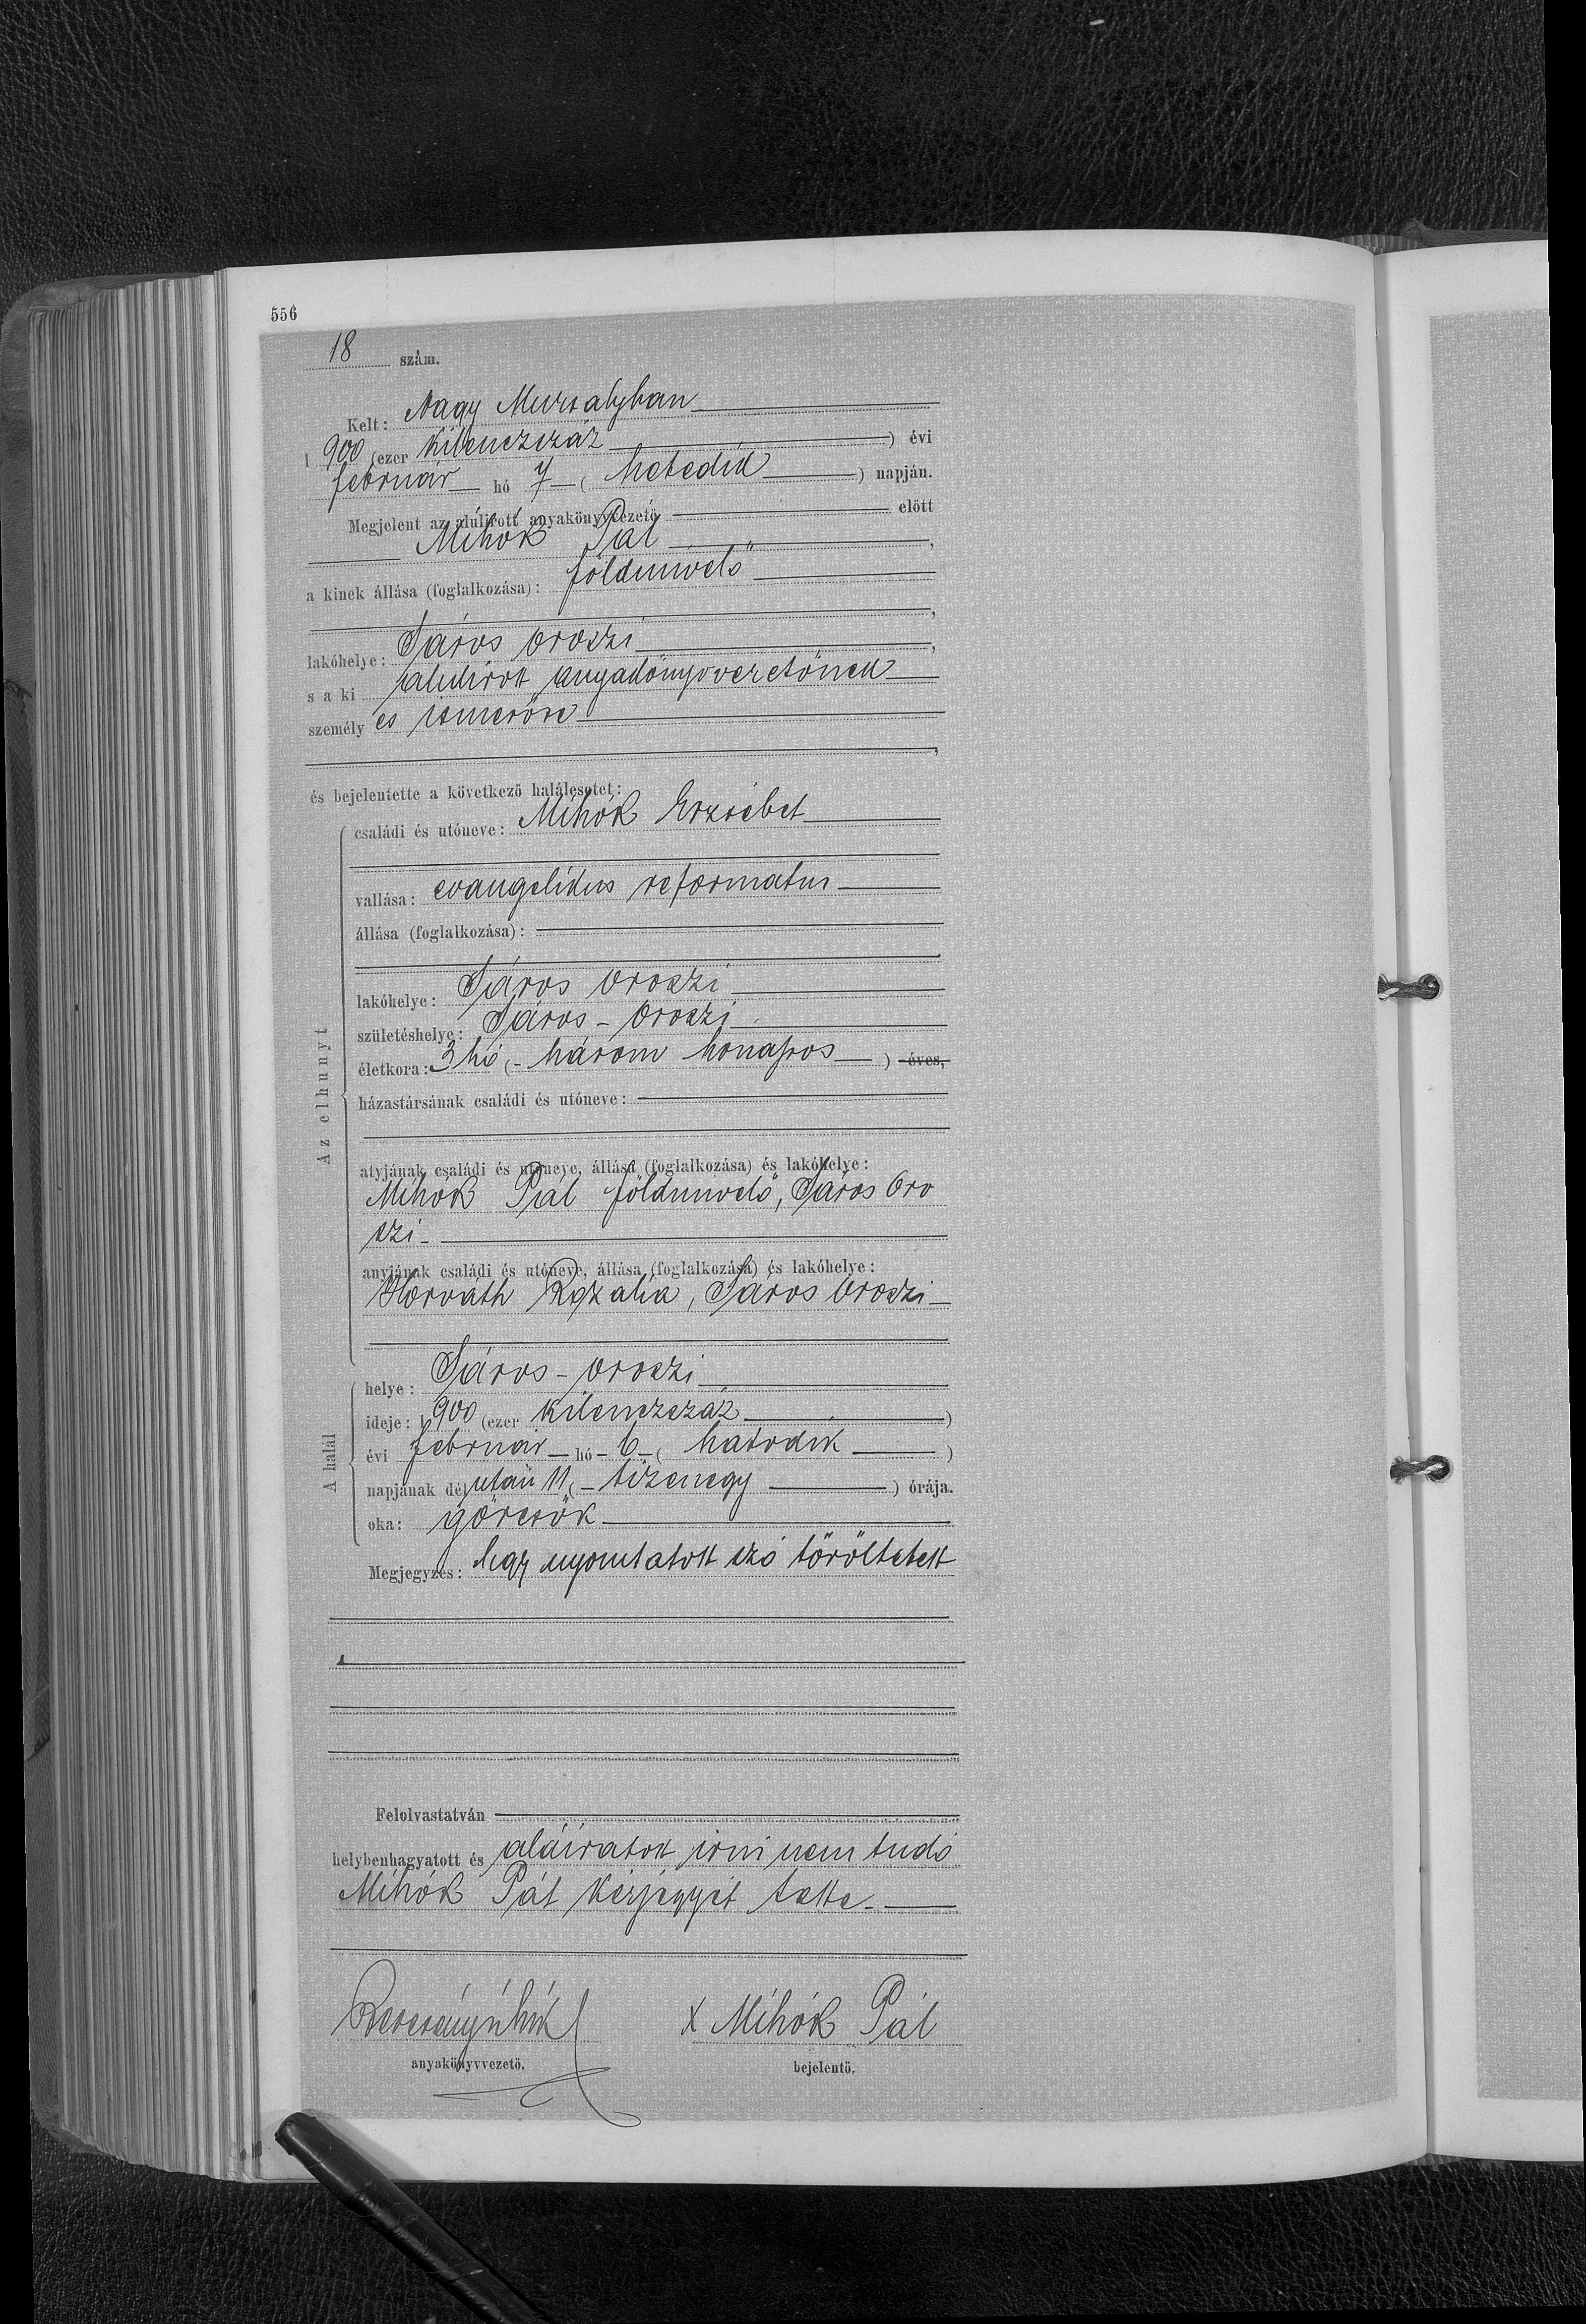 556
18 szám.
Kelt: Nagy Muzsalyban
1 900 (ezer kilenczszáz ) évi
február hó 7 ( hetedik ) napján.
Megjelent az alúlirott anyakönyvvezető előtt
Mihók Pál,
a kinek állása (foglalkozása): földmivelő
,
lakóhelye: Sáros oroszi,
s a ki alulirott anyakönyvvezetőnek
személyes ismerőse
,
és bejelentette a következő halálesetet:
családi és utóneve: Mihók Erzsébet
vallása: evangelikus reformatus
állása (foglalkozása):
lakóhelye: Sáros oroszi
születéshelye: Sáros-oroszi
életkora: 3 hó (- három honapos ) éves,
házastársának családi és utóneve:
Az elhunyt
atyjának családi és utóneve, állása (foglalkozása) és lakóhelye:
Mihók Pál földmivelő, Sáros Oro
szi-
anyjának családi és utóneve, állása (foglalkozása) és lakóhelye:
Horváth Rozalia, Sáros Oroszi
helye: Sáros-oroszi
ideje: 1 900 (ezer kilenczszáz )
évi február hó 6 ( hatodik )
A halál
napjának délután 11 (- tizenegy ) órája.
oka: görcsök
Megjegyzés: Egy nyomtatott szó töröltetett
Felolvastatván
helybenhagyatott és aláiratott irni nem tudó
Mihók Pál kézjegyét tette.
x Mihók Pál
anyakönyvvezető. bejelentő.